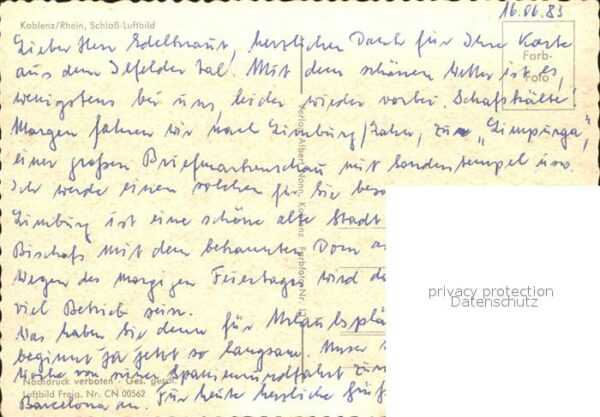 16.06.83
Koblenz/Rhein, Schloß-Luftbild
Lieber Herr Edeltraut, herzlichen Dank für Ihre Karte
Farb-
Foto
aus dem Ilfelder Tal. Mit dem schönen Wetter ist es,
wenigstens bei uns, leider wieder vorbei. Schafskälte!
Morgen fahren wir nach Limburg/Lahn, zur „Limpurga“,
einer großen Briefmarkenschau mit Sonderstempel usw.
Ich werde einen solchen für Sie
Limburg ist eine schöne alte Stadt
Bischofs mit dem bekannten Dom
Wegen des morgigen Feiertages wird
viel Betrieb sein.
Was haben Sie denn für
beginnt ja jetzt so langsam. Unser
Woche von seiner Spanienrundfahrt
Barcelona an. Für heute herzliche
Nachdruck verboten - Ges. gesch.
Luftbild Freig. Nr. CN 00562
privacy protection
Datenschutz